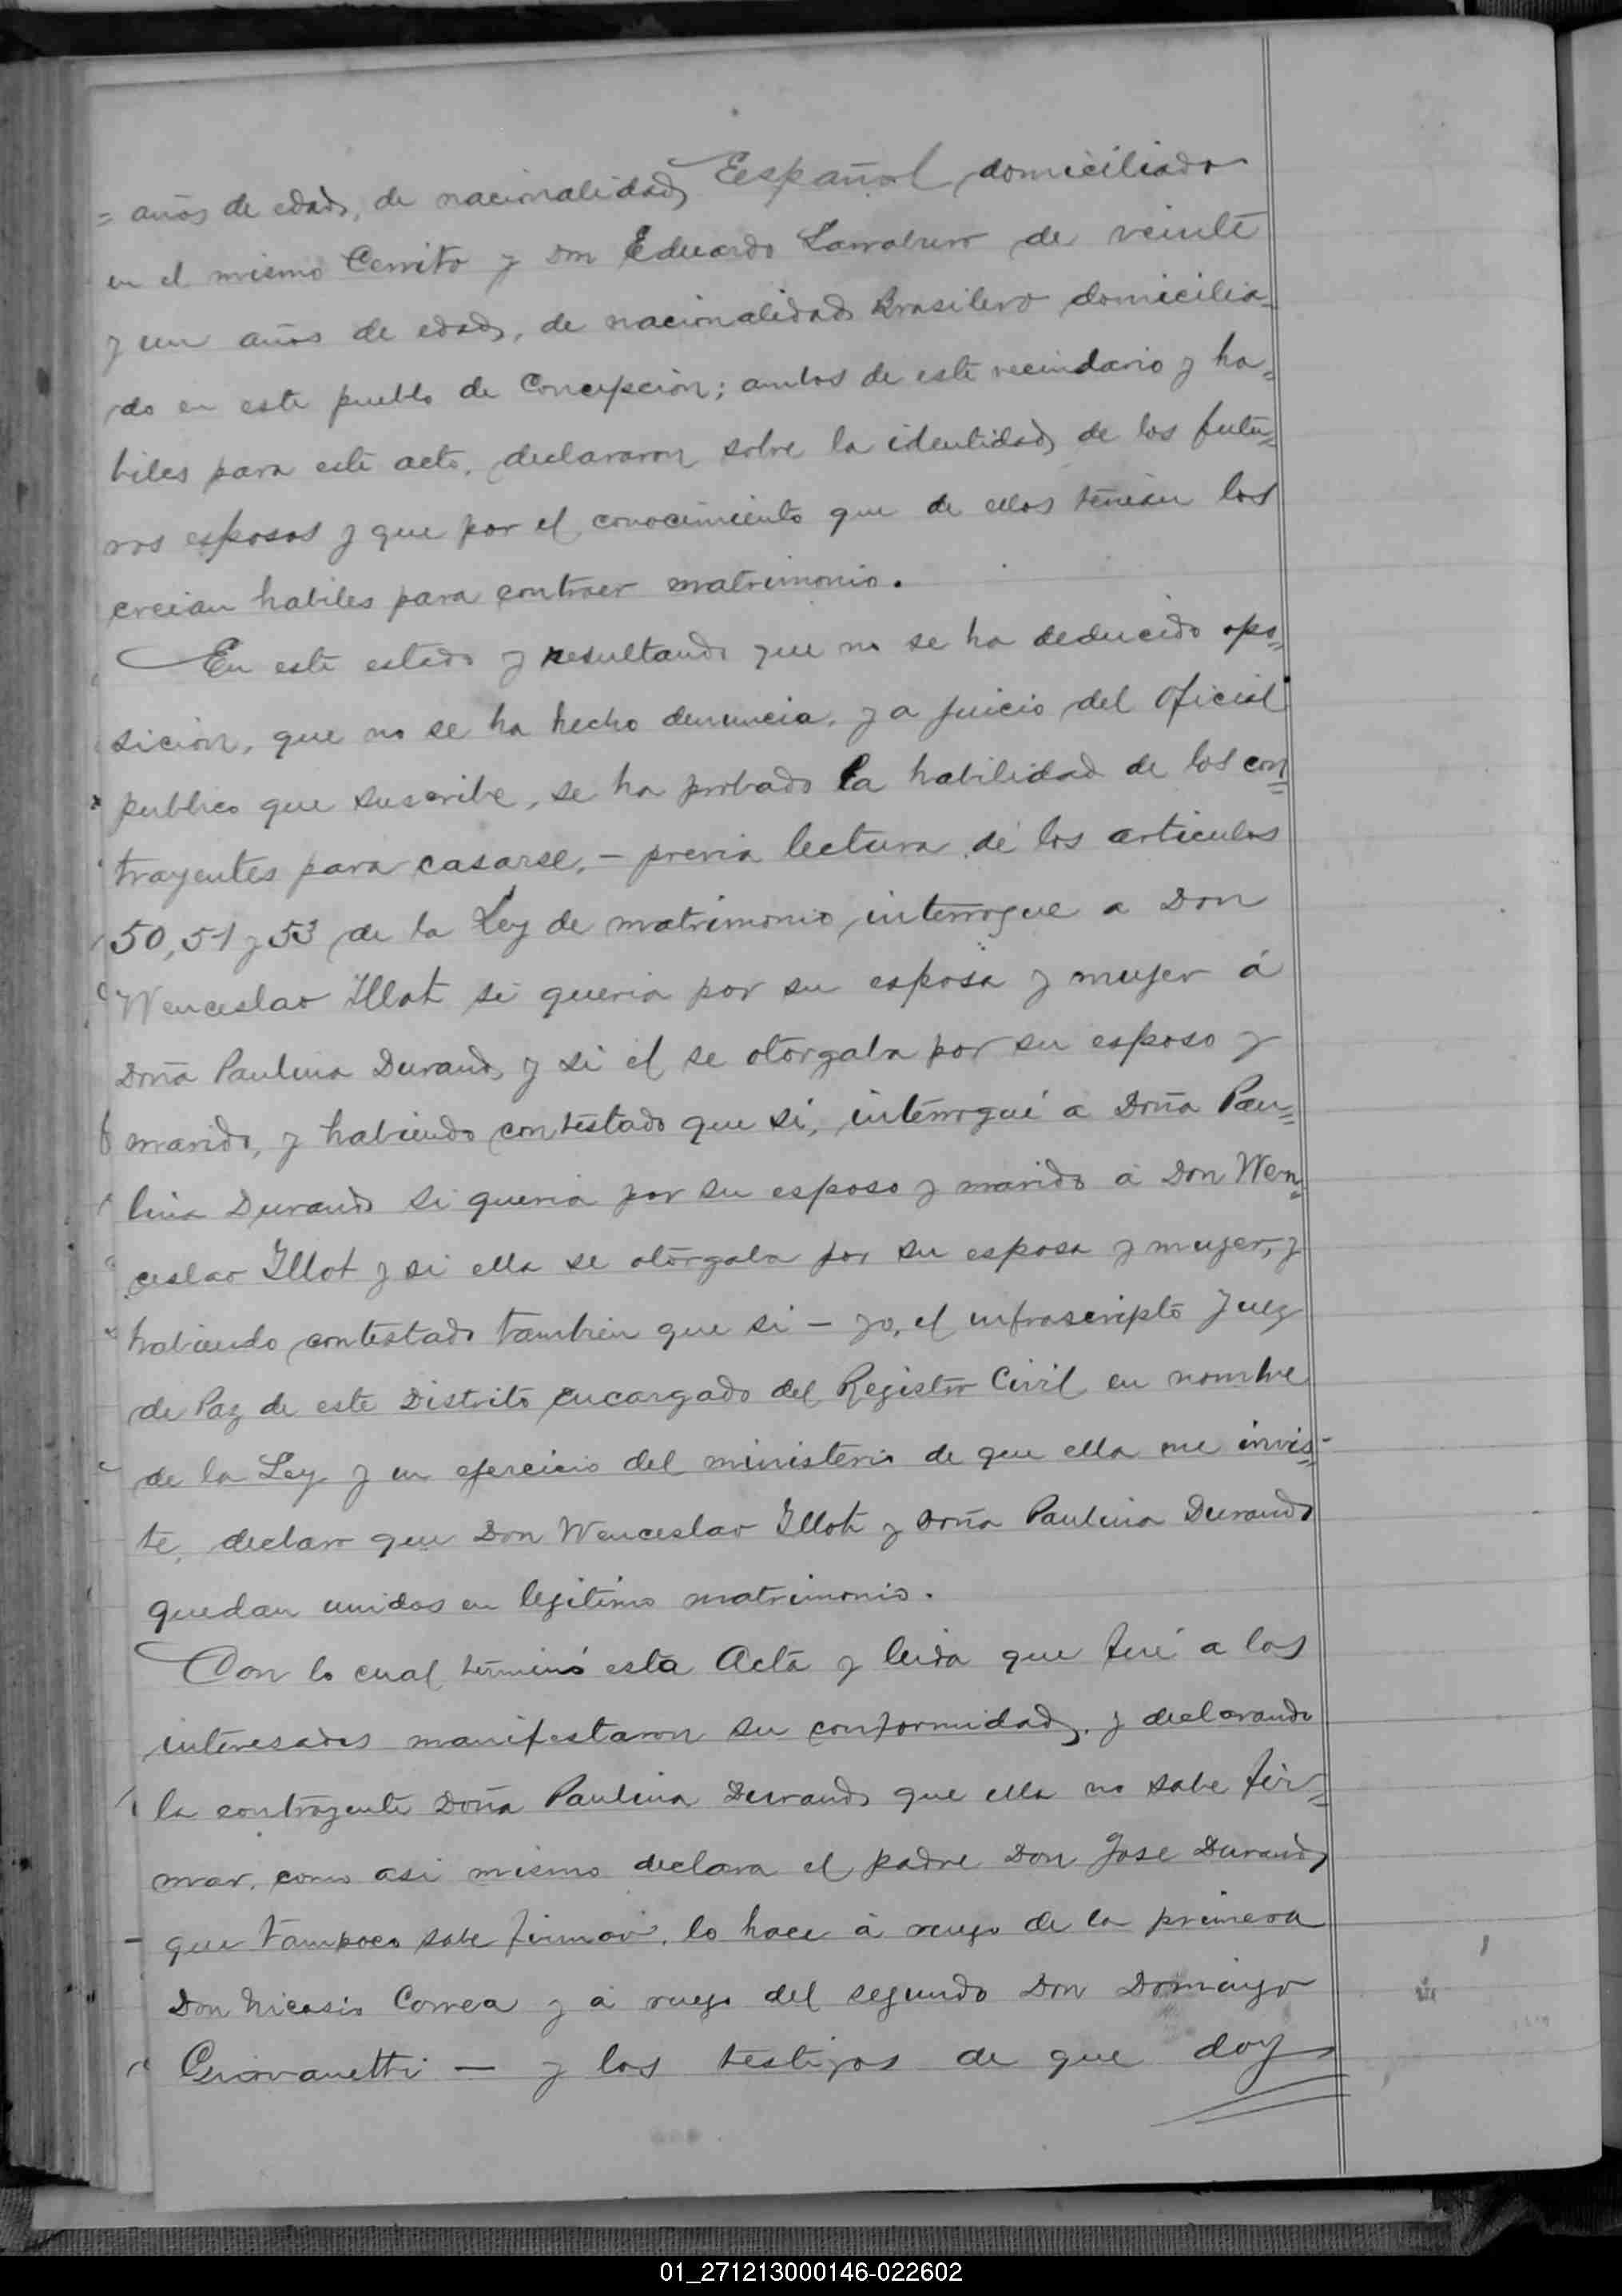 = años de edad, de nacionalidad Español domiciliado
en el mismo Cerrito y Don Eduardo Larraburo de veinte
y un años de edad, de nacionalidad Brasilero domicilia=
do en este pueblo de Concepcion; ambos de este vecindario y ha=
biles para este acto, declararon sobre la identidad de los futu=
ros esposos y que por el conocimiento que de ellos tenian los
creian habiles para contraer matrimonio.
En este estado y resultando que no se ha deducido opo=
sicion, que no se ha hecho denuncia, y a juicio del Oficial
publico que suscribe, se ha probado la habilidad de los con=
trayentes para casarse, - previa lectura de los articulos
50, 51 y 53 de la Ley de matrimonio, interrogue a Don
Wenceslao Illot si queria por su esposa y mujer á
Doña Paulina Durand, y si el se otorgaba por su esposo y
marido, y habiendo contestado que si, interrogué a Doña Pau=
lina Durand si queria por su esposo y marido a Don Wen=
ceslao Illot y si ella se otorgaba por su esposa y mujer, y
habiendo contestado tambien que si - yo, el infrascripto Juez
de Paz de este Distrito encargado del Registro Civil en nombre
de la Ley y en ejercicio del ministerio de que ella me invis=
te, declaro que Don Wenceslao Illot y Doña Paulina Durand
quedan unidos en legitimo matrimonio.
Con lo cual terminó esta Acta y leida que fué a los
interesados manifestaron su conformidad, y declarando
la contrayente Doña Paulina Durand que ella no sabe fir=
mar, como asi mismo declara el padre Don Jose Durand,
que tampoco sabe firmar, lo hace á ruego de la primera
Don Nicasio Correa y á ruego del segundo Don Domingo
Giovanetti — y los testigos de que doy
01_271213000146-022602